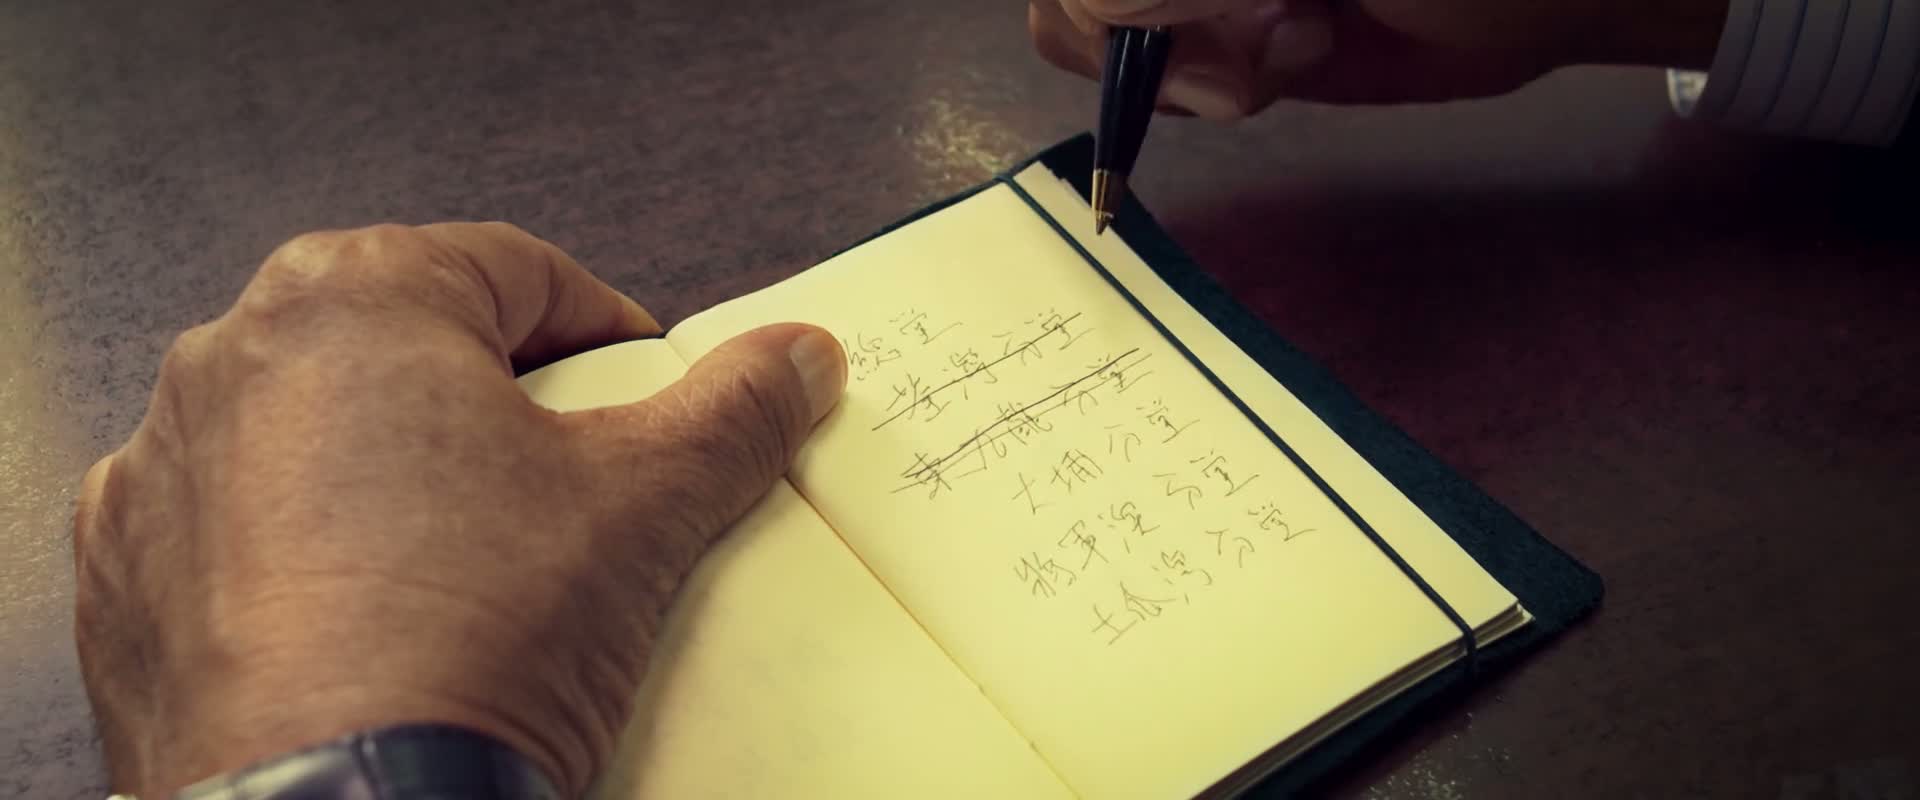 總堂
葵涌分堂
東九龍分堂
大埔分堂
將軍澳分堂
土瓜灣分堂